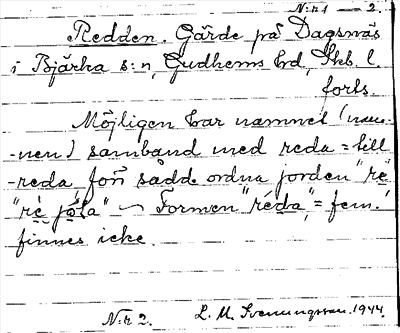 N:r 1 — 2.
Redden. Gärde på Dagsnäs
i Bjärka s:n, Gudhems hd, Skb. l.
forts.
Möjligen har namnet (nam-
-nen) samband med reda = till-
-reda, för sådd ordna jorden "re
"re jola" ~ Formen "réda" = fem.
finnes icke.
N:r 2. L. M. Svenungsson. 1944.